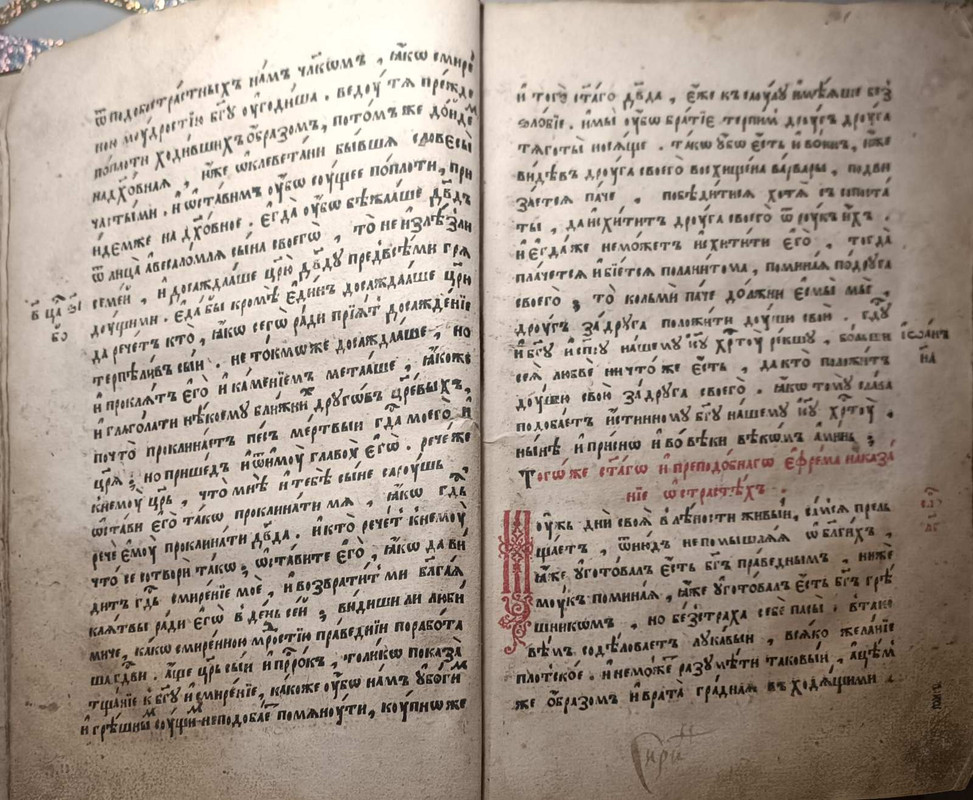 ѿ подобострⷭ҇тныхъ на́мъ чл҃кѡмъ , ꙗ҆́кѡ смире́
ною мѹ́дростїю бг҃ꙋ ѹ҆годи́ша . ведоу́ тѧ пре́жде
поплоти ходи́вшихъ о҆́бразомъ , пото́мъ же до́йдемъ
надх҃о́внаѧ , и҆́же ѡ҆клевета́ни бы́вшаѧ словесы̀
ча́стыми . и҆ ѡ҆ста́вимъ ѹ҆́бѡ сѹ́щее попло́ти , при
и҆́демже на дх҃о́вное . є҆гда̀ ѹ҆́бѡ бѣжа́аше дв҃дъ
ѿ лица̀ а҆весало́млѧ сы́на своегѡ̀ , то̀ не и҆злѣ́зли
семе́й , и҆ досажда́аше цр҃ю̀ дв҃дꙋ предъвсѣ́ми грѧ
дѹ́щими . є҆да̀ бы̀ кромѣ̀ є҆ди́нъ досажда́аше цр҃ю̀
да рече́тъ кто̀ , ꙗ҆́кѡ сегѡ̀ ра́ди прїѧ́тъ досажде́нїе
терпѣли́въ сы́й . не то́кмѡже досажда́аше , но
и҆ проклѧ́тъ є҆го̀ и҆ ка́менїемъ мета́аше , ꙗ҆́коже
и҆ глаго́лати нѣ́коемꙋ бли́жнихъ дрꙋгѡ́въ цр҃е́выхъ ,
почто̀ проклина́етъ пе́съ ме́ртвыи гдⷭ҇а моего̀ и҆
цр҃ѧ̀ ; но прише́дъ и҆ ѿимѹ̀ главѹ̀ є҆гѡ̀ . рече́ же
кнемѹ̀ цр҃ь , что̀ мнѣ̀ и҆ тебѣ̀ сы́не сарѹ́шь ,
ѡ҆ста́ви є҆го̀ та́кѡ проклина́ти мѧ , ꙗ҆́кѡ гдⷭ҇ь
речѐ є҆мѹ̀ проклина́ти дв҃да . и҆ кто̀ рече́тъ кнемѹ̀
что̀ се сотворѝ та́кѡ ; ѡ҆ста́вите є҆го̀ , ꙗ҆́кѡ да ви́
дитъ гдⷭ҇ь смире́нїе моѐ , и҆ возврати́тъ ми блага́ѧ
клѧ́твы ра́ди є҆гѡ̀ в де́нь се́й ; ви́диши ли люби́
миче , ка́кѡ смире́нною мрⷣостїю пра́веднїи порабо́та
ша гдⷭ҇ви . а҆́ще цр҃ь сы́и и҆ прⷪ҇ро́къ , толи́кѡ показа̀
тща́нїе к бг҃ꙋ и҆ смире́нїе , ка́коже ѹ҆́бѡ на́мъ ѹ҆бо́гимъ
и҆ грѣ́шнымъ сѹ́щимъ неподоба́етъ помѧнѹ́ти , ко́упнѡже
в҃ цр҃ ѕ҃і
и҆ того̀ ст҃а́го дв҃да , є҆́же къ саѹ́лꙋ и҆мѣ́ѧше без̾
ѕло́бїе . и҆ мы̀ ѹ҆́бѡ бра́тїе терпи́м дрꙋ́гъ дрꙋ́га
тѧготы̀ носѧ́ще . та́кѡ ѹ҆́бѡ є҆́сть и҆ во́инъ , и҆́же
ви́дѣвъ дрꙋ́га своего̀ восхище́на ва́рвары , подви
за́етсѧ па́че , побѣди́тисѧ хотѧ̀ съ сꙋпоста́
ты , да и҆схи́титъ дрꙋ́га своего̀ ѿ рꙋ́къ и҆́хъ .
и҆ є҆гда́же не мо́жетъ и҆схи́тити є҆го̀ , тогда̀
пла́четсѧ и҆ бїе́тсѧ пола́нитома , помина́ѧ по́дрꙋга
своего̀ ; то̀ кольми̂ па́че до́лжни є҆смы̀ мы̀ ,
дрꙋ́гъ за́дрꙋга положи́ти дꙋ́ши своѝ . гдⷭ҇ꙋ
и҆ бг҃ꙋ и҆ сп҃сꙋ на́шемꙋ і҆с҃ꙋ хрⷭ҇тꙋ̀ рекшꙋ̀ , бо́льши
сеѧ̀ любвѐ ничто́же є҆́сть , да кто̀ положи́тъ
дꙋ́шꙋ свою̀ за́дрꙋга своего̀ . ꙗ҆́кѡ томꙋ̀ сла́ва
подоба́етъ и҆́стинномꙋ бг҃ꙋ на́шемꙋ і҆с҃ꙋ хрⷭ҇тꙋ̀ ,
ны́нѣ и҆ при́снѡ и҆ во́ вѣки вѣкѡ́мъ а҆ми́нь ;
і҆ѡа́нъ
Тогѡ́же ст҃а́гѡ и҆ преподо́бнагѡ є҆фре́ма наказа́
нїе ѡ҆ страсте́хъ .
Мѹ́жь дни̂ своѧ̀ в лѣ́ности живы́й , са́мсѧ прель
ща́етъ , ѿню́дъ непомышлѧ́ѧ ѡ҆ благи́хъ ,
ꙗ҆̀же ѹ҆гото́валъ є҆́сть бг҃ъ пра́веднымъ , нижѐ
мѹ́къ помина́ѧ , ꙗ҆̀же ѹ҆гото́валъ є҆́сть бг҃ъ грѣ́
шникѡмъ , но безстра́ха себѐ пасы̀ . в тако
вѣ́мъ содѣ́ловаетъ лꙋка́выи , всѧ́ко жела́нїе
пло́тское . и҆ немо́же разꙋмѣ́ти таковы́и , а҆́цѣм
же о҆́бразомъ и҆ врата̀ гра́днаѧ входѧ́щими